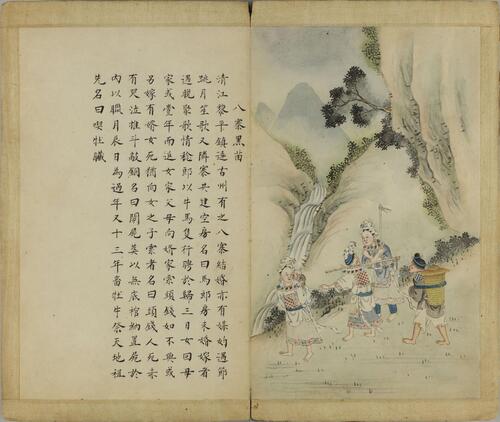 八寨黑苗
清江黎平鎮遠古州有之八寨結婚亦有媒妁遇節
跳月笙歌又隣寨共建空房名曰馬郎房未婚嫁者
遇晚聚歌情稔郎以牛馬隻行聘於歸三日女回母
家或壹年而返女家父母向婿家索頭錢如不與或
另嫁有婿女死猶向女之子索者名曰頭錢人死亦
有哭泣椎斗敲銅名曰鬧屍葬以無底棺納蓋屍於
內以臘月辰日為過年又十三年畜牡牛祭天地祖
先名曰喫牡臟